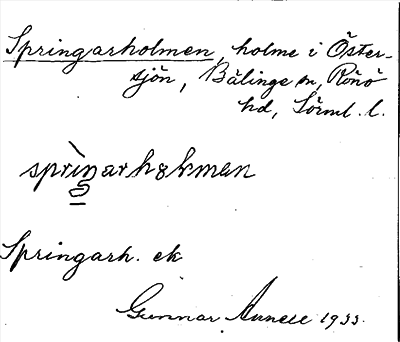 Springarholmen, holme i Öster-
sjön, Bälinge sn, Rönö
hd, Sörml. l.
sprìŋarhɷkman
Springarh. ek
Gunnar Annell 1933.